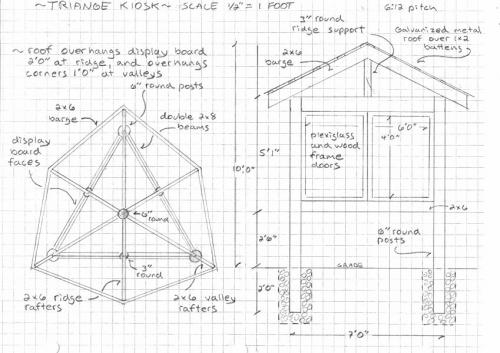 ~TRIANGE KIOSK~ SCALE 1/2" = 1 FOOT
6:12 pitch
~ roof overhangs display board
2'0" at ridge, and overhangs
corners 1'0" at valleys
6" round posts
2x6
barge
double 2x8
beams
display
board
faces
6"
round
3"
round
2x6 ridge
rafters
2x6 valley
rafters
3" round
ridge support
Galvanized metal
roof over 1x2
battens
2x6
barge
10'0"
5'1"
plexiglass
and wood
frame
doors
6'0"
4'0"
2x6
2'6"
6" round
posts
GRADE
2'0"
7'0"